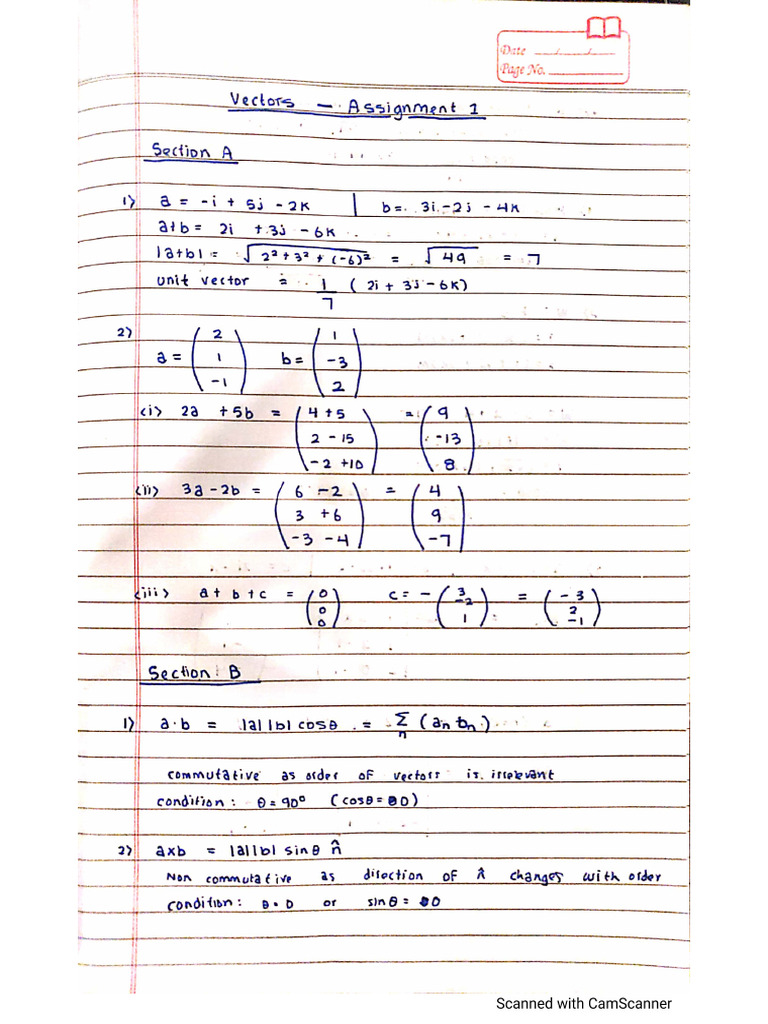 Date __/__/__
Page No. ______
Vectors - Assignment 1
Section A
1) a = -i + 5j - 2k | b = 3i - 2j - 4k
a+b = 2i + 3j - 6k
|a+b| = √(2² + 3² + (-6)²) = √49 = 7
unit vector = 1/7 (2i + 3j - 6k)
2) a = (2 1 -1) b = (1 -3 2)
(i) 2a + 5b = (4+5 2-15 -2+10) = (9 -13 8)
(ii) 3a - 2b = (6-2 3+6 -3-4) = (4 9 -7)
(iii) a + b + c = (0 0 0) c = -(3 -2 1) = (-3 2 -1)
Section B
1) a·b = |a||b|cosθ = Σn (an bn)
commutative as order of vectors is irrelevant
condition: θ = 90° (cosθ = 0)
2) axb = |a||b| sinθ n̂
Non commutative as direction of n̂ changes with order
condition: θ = 0 or sinθ = 0
Scanned with CamScanner